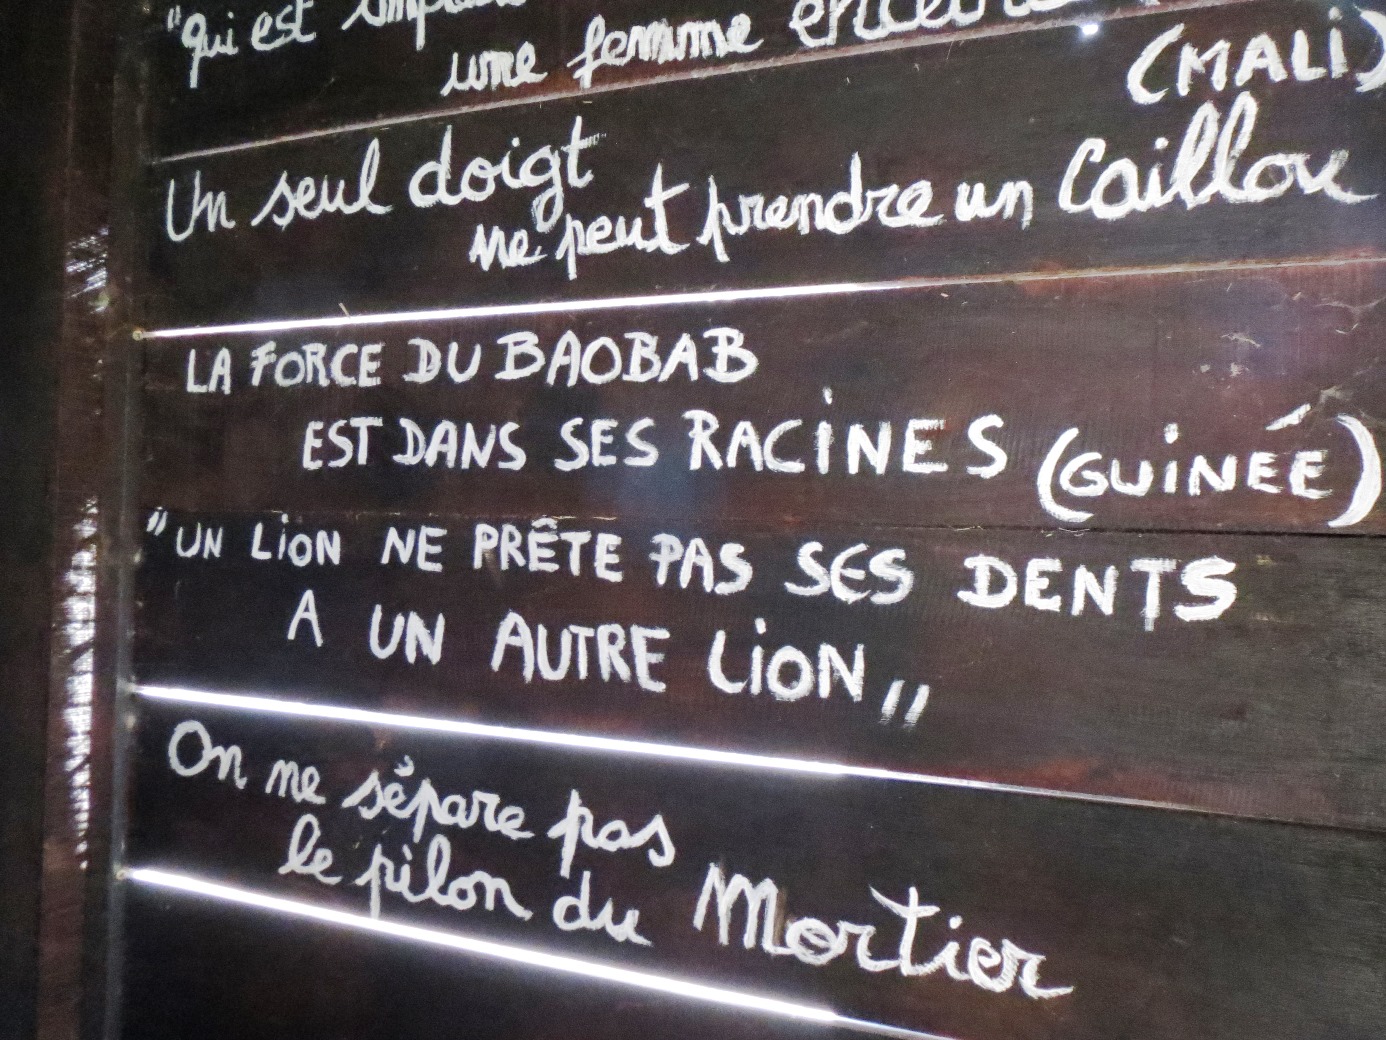 "qui est
une femme enceinte
(MALI)
Un seul doigt
ne peut prendre un Caillou
LA FORCE DU BAOBAB
EST DANS SES RACINES (GUINÉE)
"UN LION NE PRÊTE PAS SES DENTS
A UN AUTRE LION"
On ne sépare pas
le pilon du Mortier